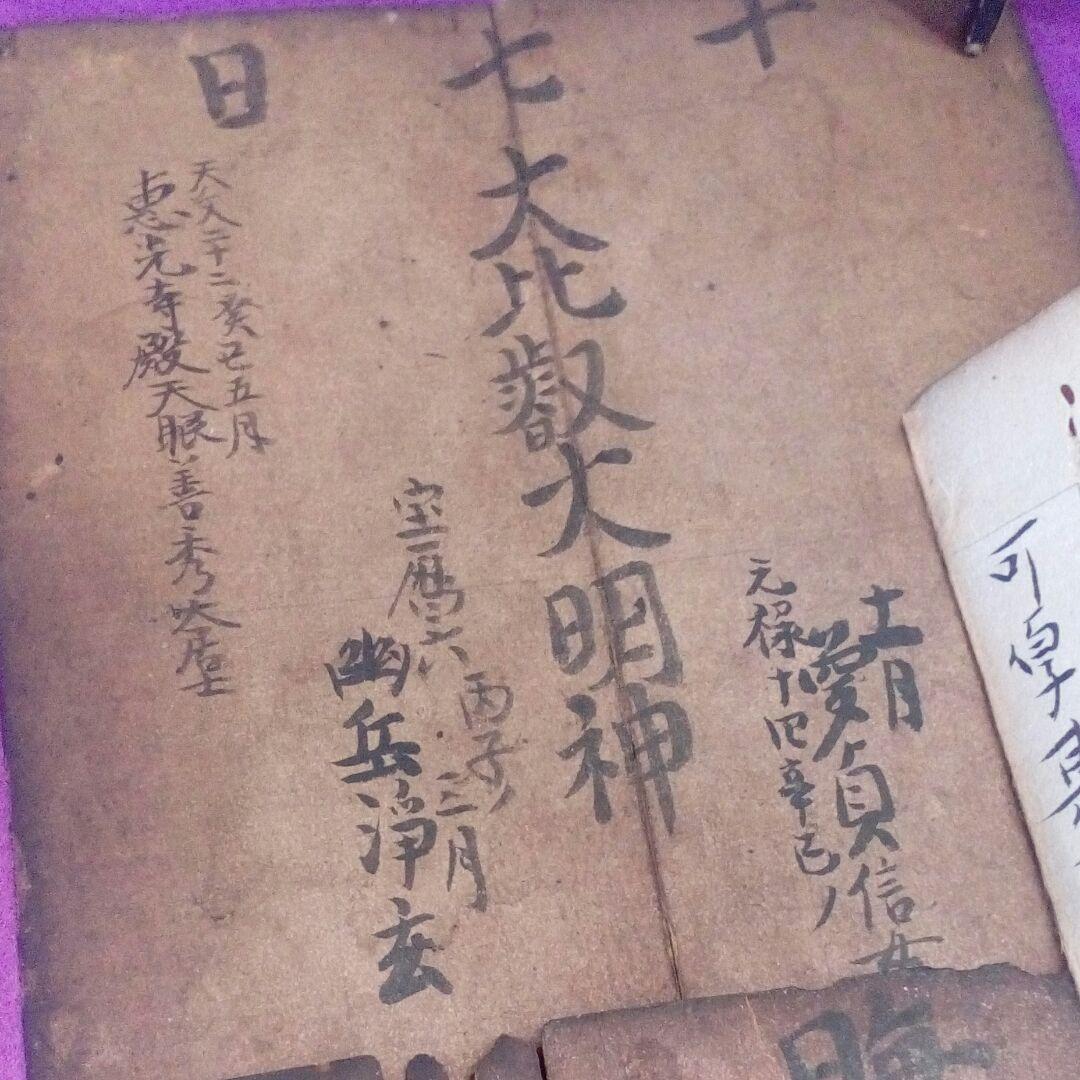 十七日
十一月
貞信女
元禄十四辛巳ノ
大比叡大明神
宝暦六丙子ノ三月
幽岳淨玄
天文二十二癸丑五月
惠光寺殿天眼善秀大居士
可
晦